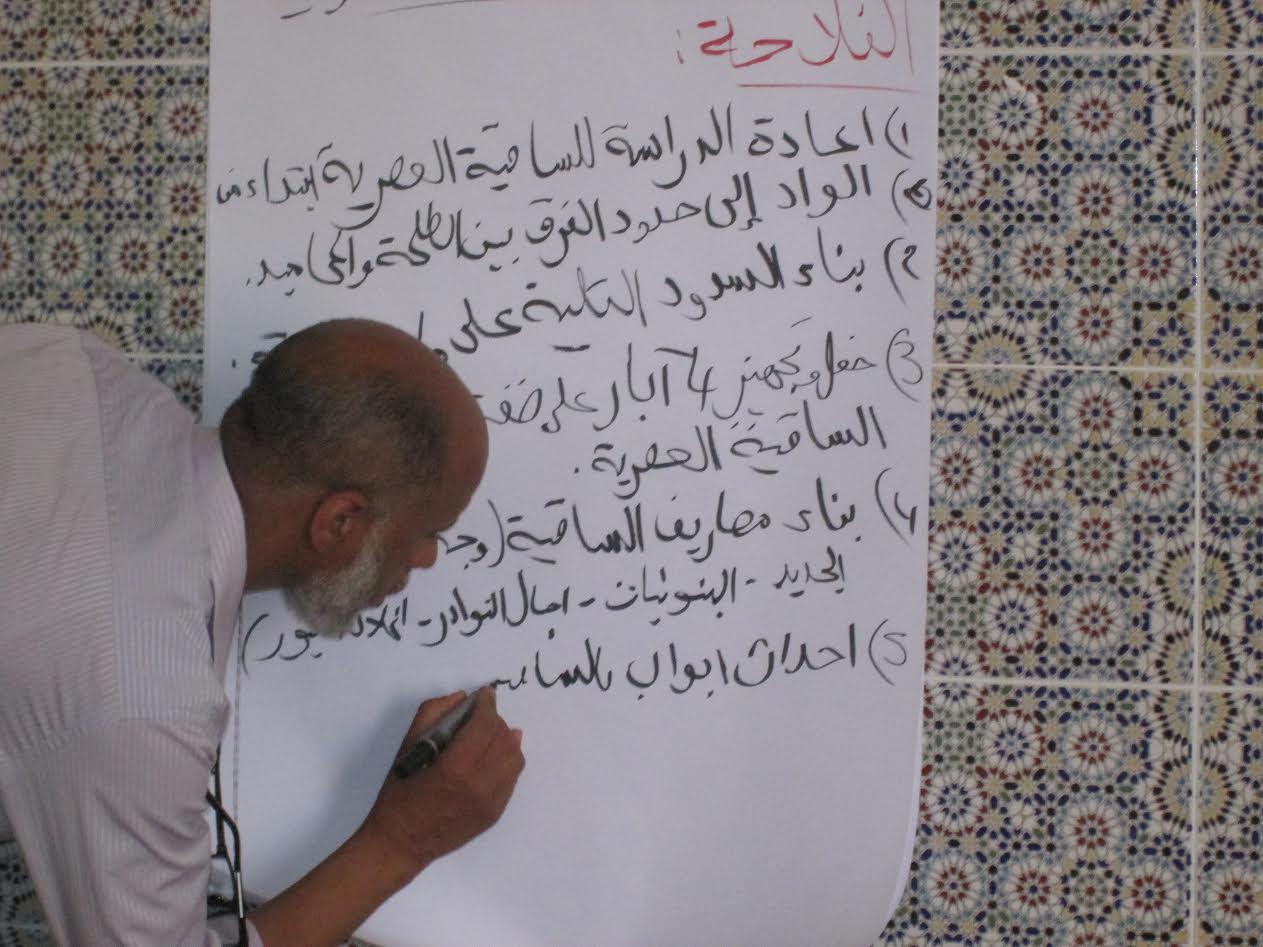 الفلاحة:
1) اعادة الدراسة للساقية العصرية ابتداء من
الواد إلى حدود الفرق بين الطلحة و
2) بناء السدود التلية على
3) حفر وتجهيز 4 آبار على ضفة
الساقية العصرية.
4) بناء مصاريف الساقية (وجه
الجديد - البنوثيات - اجبال النوادر -
5) احداث ابواب بالسا